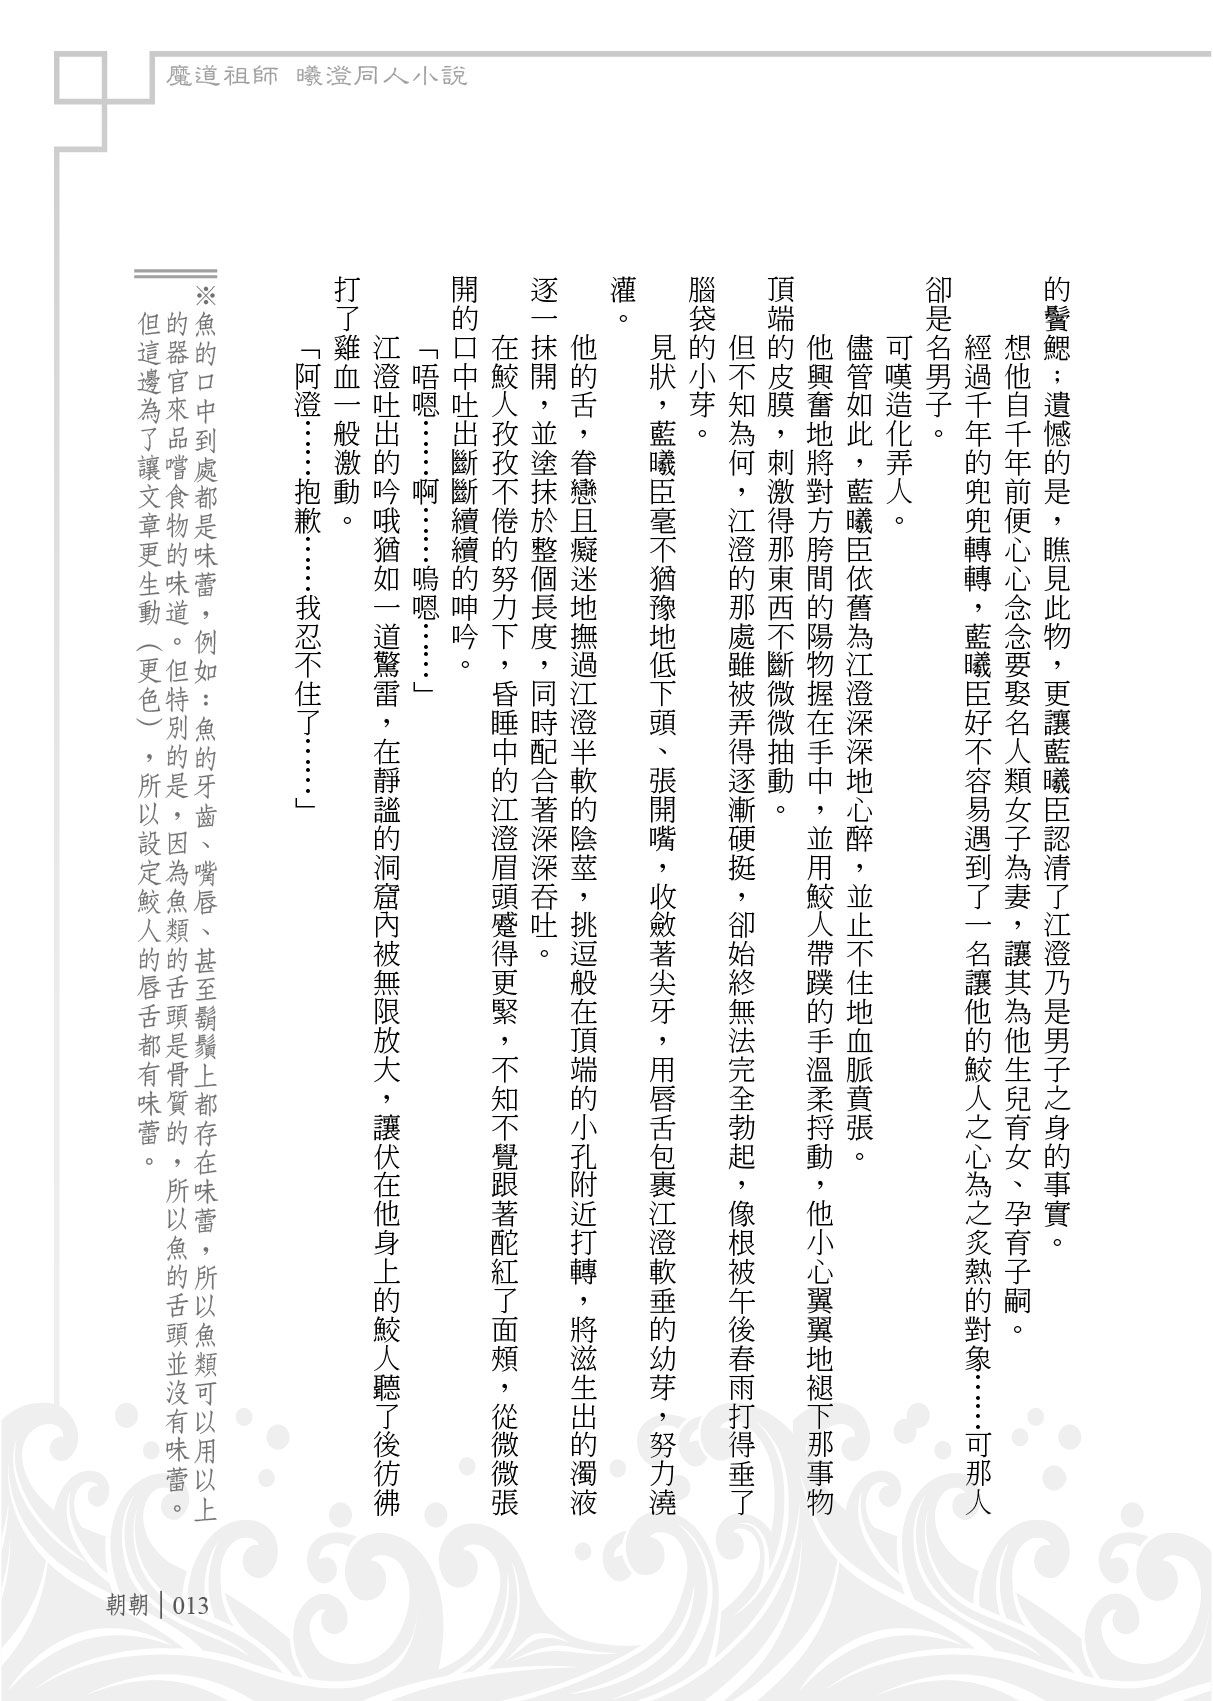 魔道祖師 曦澄同人小說
的鬢鰓；遺憾的是，瞧見此物，更讓藍曦臣認清了江澄乃是男子之身的事實。
想他自千年前便心心念念要娶名人類女子為妻，讓其為他生兒育女、孕育子嗣。
經過千年的兜兜轉轉，藍曦臣好不容易遇到了一名讓他的鮫人之心為之炙熱的對象……可那人
卻是名男子。
可嘆造化弄人。
儘管如此，藍曦臣依舊為江澄深深地心醉，並止不住地血脈賁張。
他興奮地將對方胯間的陽物握在手中，並用鮫人帶蹼的手溫柔捋動，他小心翼翼地褪下那事物
頂端的皮膜，刺激得那東西不斷微微抽動。
但不知為何，江澄的那處雖被弄得逐漸硬挺，卻始終無法完全勃起，像根被午後春雨打得垂了
腦袋的小芽。
見狀，藍曦臣毫不猶豫地低下頭、張開嘴，收斂著尖牙，用唇舌包裹江澄軟垂的幼芽，努力澆
灌。
他的舌，眷戀且癡迷地撫過江澄半軟的陰莖，挑逗般在頂端的小孔附近打轉，將滋生出的濁液
逐一抹開，並塗抹於整個長度，同時配合著深深吞吐。
在鮫人孜孜不倦的努力下，昏睡中的江澄眉頭蹙得更緊，不知不覺跟著酡紅了面頰，從微微張
開的口中吐出斷斷續續的呻吟。
「唔嗯……啊……嗚嗯……」
江澄吐出的吟哦猶如一道驚雷，在靜謐的洞窟內被無限放大，讓伏在他身上的鮫人聽了後彷彿
打了雞血一般激動。
「阿澄……抱歉……我忍不住了……」
※魚的口中到處都是味蕾，例如：魚的牙齒、嘴唇、甚至鬍鬚上都存在味蕾，所以魚類可以用以上
的器官來品嚐食物的味道。但特別的是，因為魚類的舌頭是骨質的，所以魚的舌頭並沒有味蕾。
但這邊為了讓文章更生動（更色），所以設定鮫人的唇舌都有味蕾。
朝朝│013